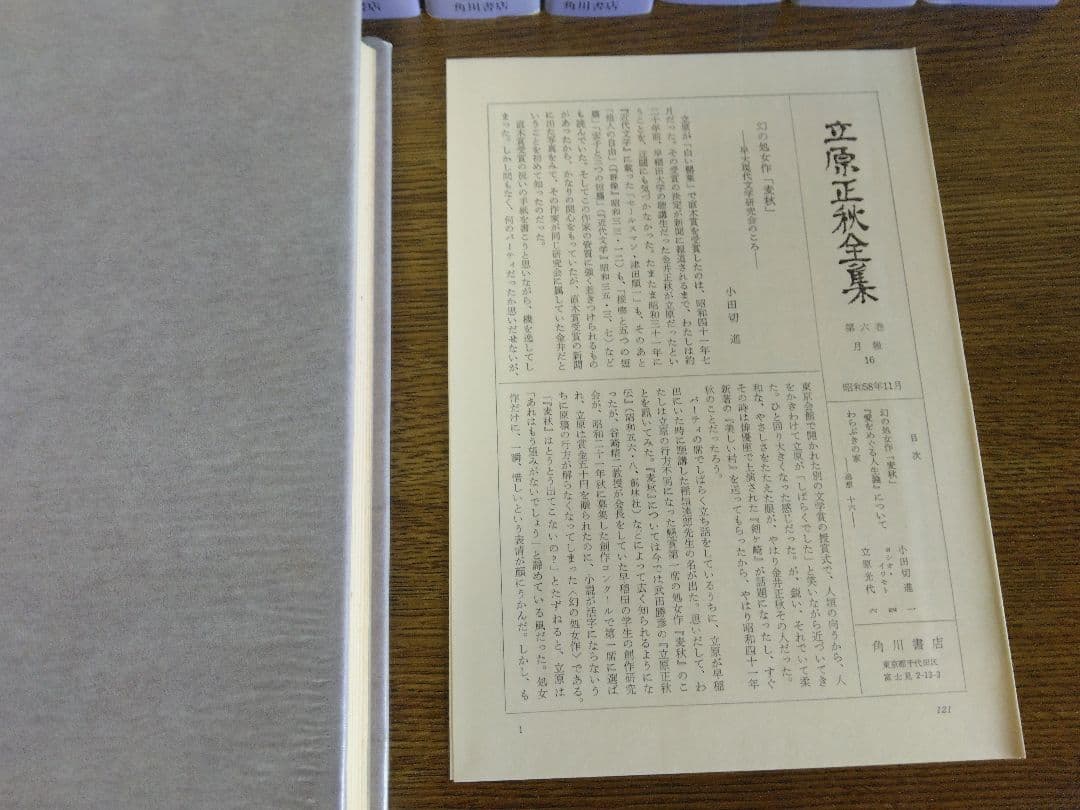 書店
角川書店
角川書店
立原正秋全集
第六巻
月報
16
昭和58年11月
目次
幻の処女作「麦秋」
小田切進 一
『愛をめぐる人生論』について
ヨシオ・イワモト 四
わらぶきの家
追想 十六―
立原光代 六
角川書店
東京都千代田区
富士見2-13-3
幻の処女作「麦秋」
―早大現代文学研究会のころ―
小田切 進
立原が「白い罌粟」で直木賞を受賞したのは、昭和四十一年七
月だった。その受賞の決定が新聞に報道されるまで、わたしは約
二十年前、早稲田大学の聴講生だった金井正秋が立原だったとい
うことを、迂闊にも気づかなかった。たまたま昭和三十一年に
『近代文学』に載った「セールスマン・津田順一」も、そのあと
「他人の自由」(『群像』昭和三三・一二)も、「接吻と五つの短
篇」「妻子と三つの短篇」(『近代文学』昭和三五・三、七)など
も読んでいた。そしてこの作家の資質に強く惹きつけられるもの
があったから、かなりの関心をもっていたが、直木賞受賞の新聞
に出た写真をみて、その作家が同じ研究会に属していた金井だと
いうことを初めて知ったのだった。
直木賞受賞の祝いの手紙を書こうと思いながら、機を逸してし
まった。しかし間もなく、何のパーティだったか思いだせないが、
東京会館で開かれた別の文学賞の授賞式で、人垣の向うから、人
をかきわけて立原が「しばらくでした」と笑いながら近づいてき
た。ひと回り大きくなった感じだった。が、鋭い、それでいて柔
和な、やさしさをたたえた眼が、やはり金井正秋その人だった。
その時は俳優座で上演された『剣ヶ崎』が話題になったし、すぐ
新著の『美しい村』を送ってもらったから、やはり昭和四十一年
秋のことだったろう。
パーティの席でしばらく立ち話をしているうちに、立原が早稲
田にいた時に聴講した稲垣達郎先生の名が出た。思いだして、わ
たしは立原の行方不明になった懸賞第一席の処女作『麦秋』のこ
とを訊いてみた。『麦秋』については今では武田勝彦の『立原正秋
伝』(昭和五六・八、創林社)などによって広く知られるようにな
ったが、谷崎精二教授が会長をしていた早稲田の学生の創作研究
会が、昭和二十一年秋に募集した創作コンクールで第一席に選ば
れ、立原は賞金五十円を贈られたのに、小説が活字にならないう
ちに原稿の行方が解らなくなってしまった〈幻の処女作〉である。
「『麦秋』はとうとう出てこないの?」とたずねると、立原は
「あれはもう望みがないでしょう」と諦めている風だった。処女
作だけに、一瞬、惜しいという表情が顔にうかんだ。しかし、も
1
121